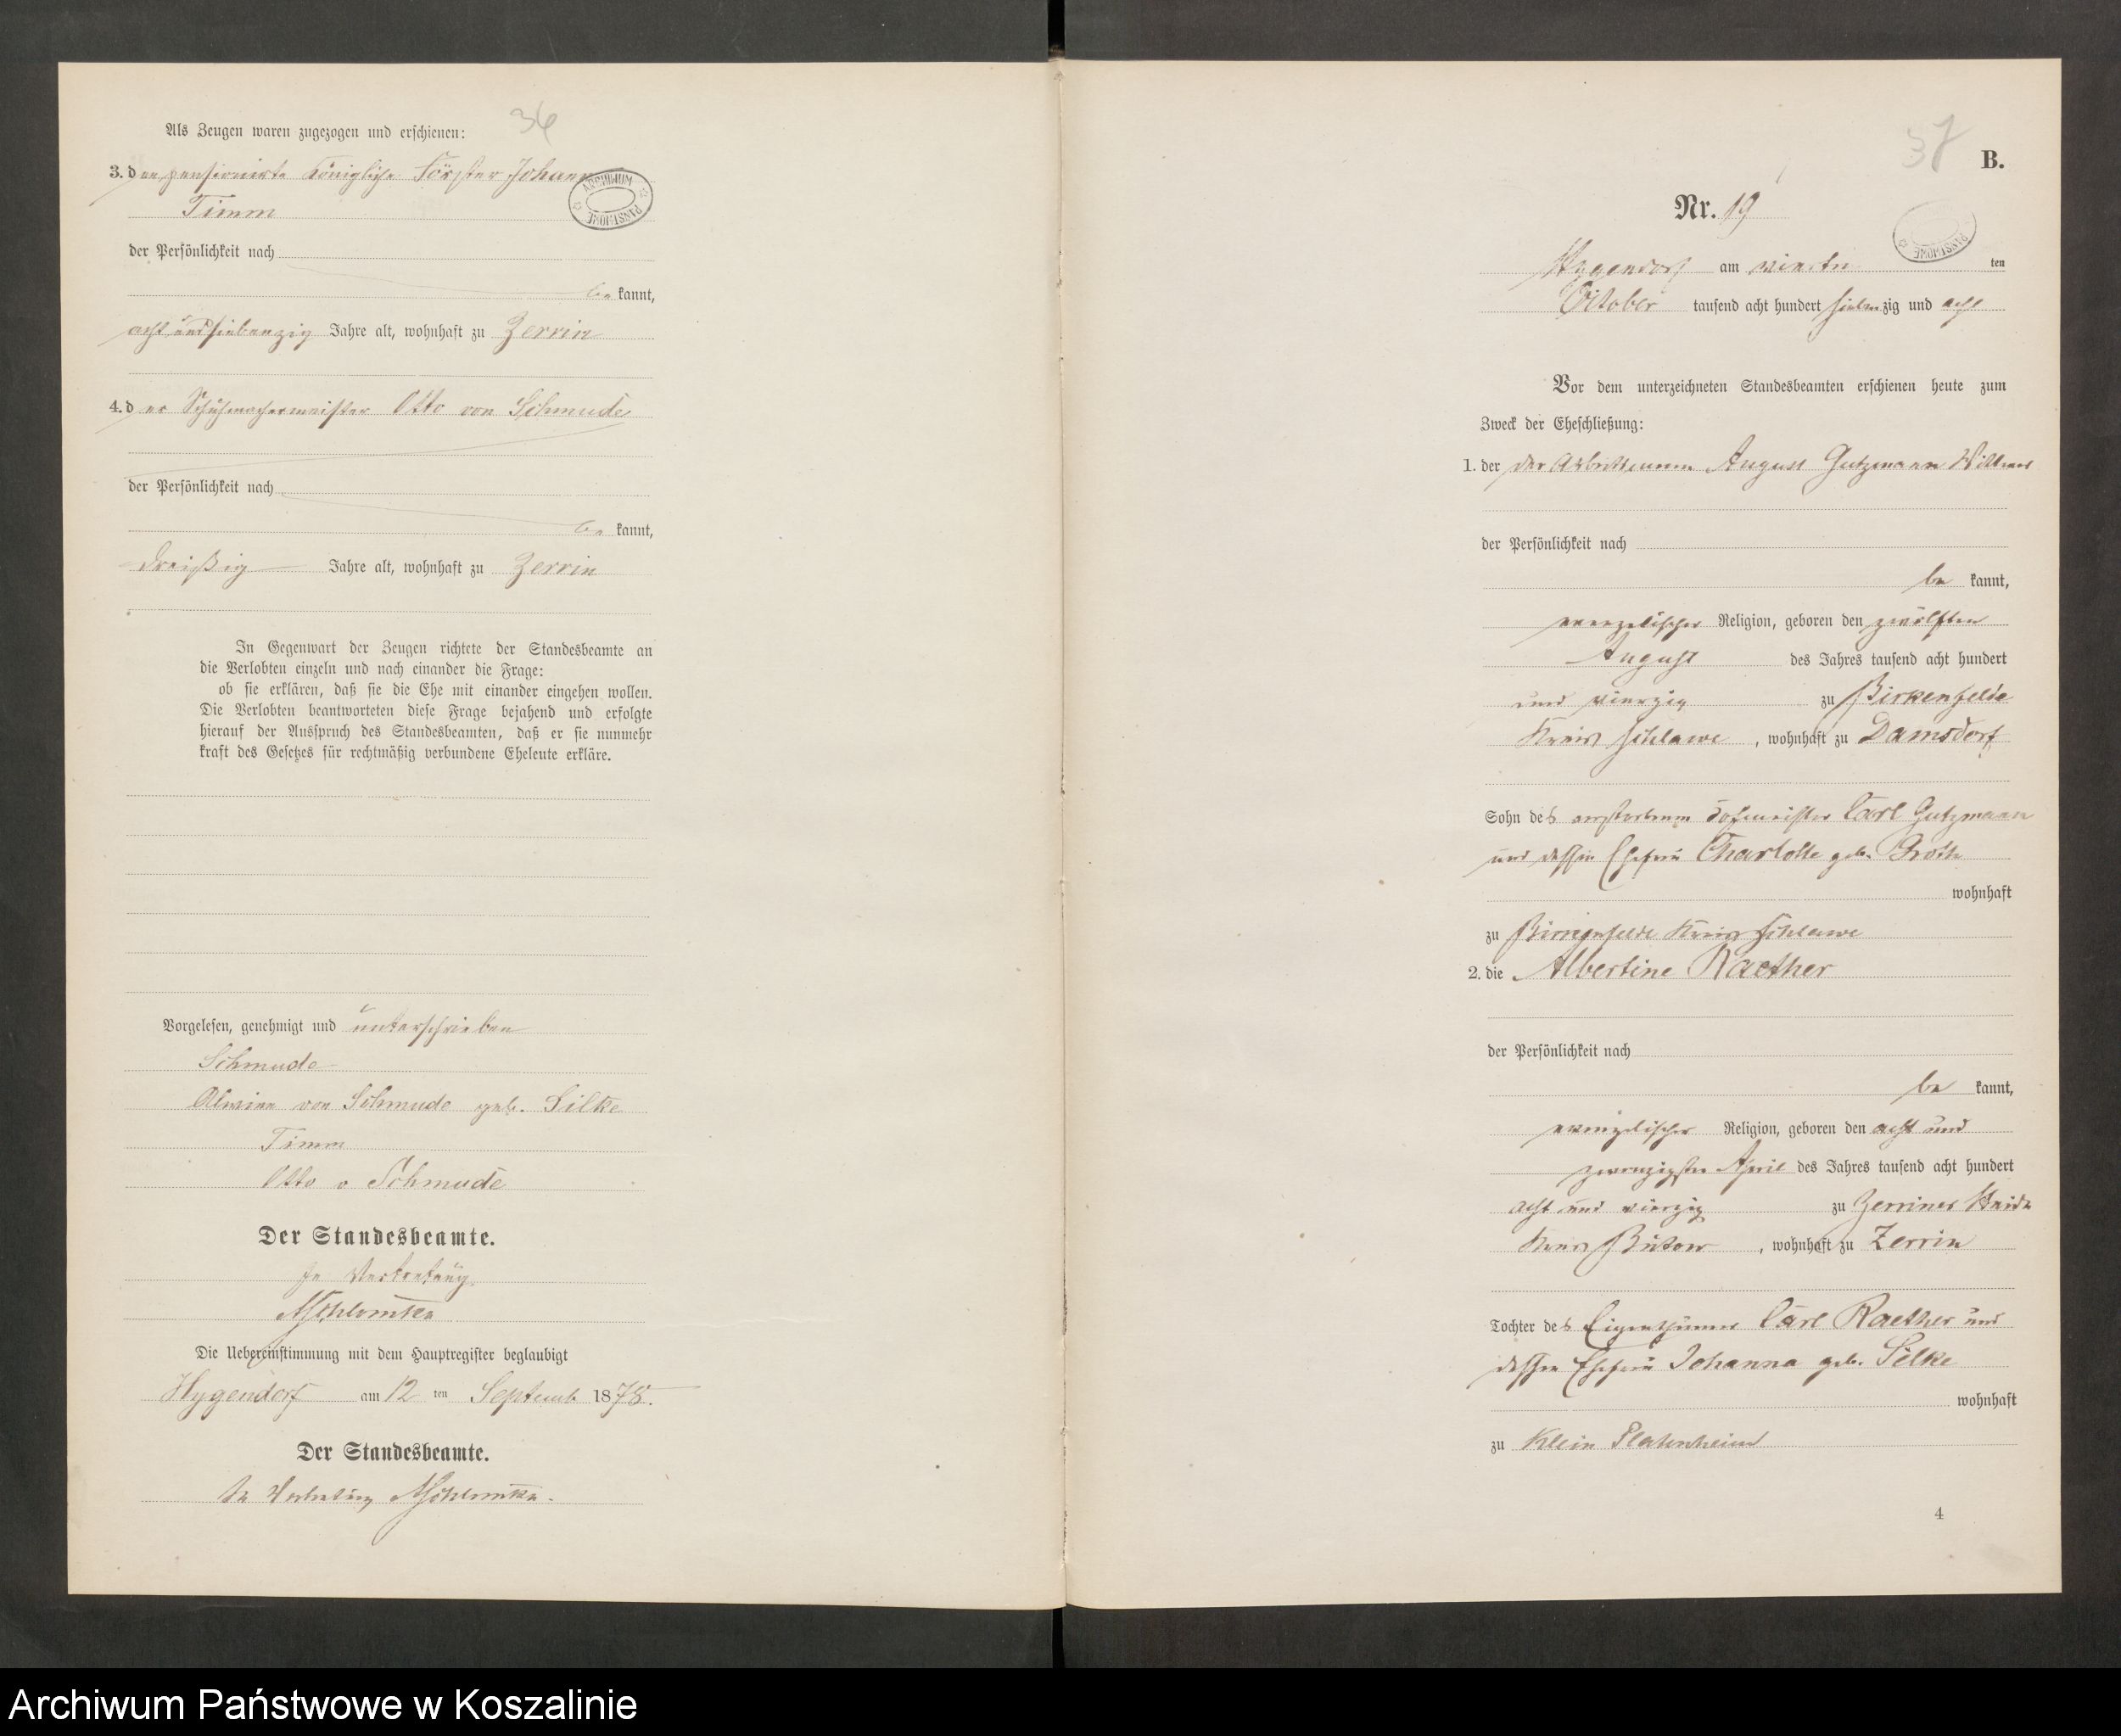 36
Als Zeugen waren zugezogen und erschienen:
3. der pensionirte Königliche Förster Johann
Timm
ARCHIWUM PAŃSTWOWE
der Persönlichkeit nach
be kannt,
acht und siebenzig Jahre alt, wohnhaft zu Zerrin
4. der Schuhmachermeister Otto von Schmude
der Persönlichkeit nach
be kannt,
dreißig Jahre alt, wohnhaft zu Zerrin
In Gegenwart der Zeugen richtete der Standesbeamte an
die Verlobten einzeln und nach einander die Frage:
ob sie erklären, daß sie die Ehe mit einander eingehen wollen.
Die Verlobten beantworteten diese Frage bejahend und erfolgte
hierauf der Ausspruch des Standesbeamten, daß er sie nunmehr
kraft des Gesetzes für rechtmäßig verbundene Eheleute erkläre.
Vorgelesen, genehmigt und unterschrieben
Schmude
Alwine von Schmude geb. Silke
Timm
Otto v Schmude
Der Standesbeamte.
In Vertretung
Die Uebereinstimmung mit dem Hauptregister beglaubigt
Hygendorf am 12 ten Septemb 1878.
Der Standesbeamte.
In Vertretung
37
B.
Nr. 19
PAŃSTWOWE
Hygendorf am vierten ten
October tausend acht hundert siebenzig und acht
Vor dem unterzeichneten Standesbeamten erschienen heute zum
Zweck der Eheschließung:
1. der der Arbeitsmann August Gutzmann Wittwer
der Persönlichkeit nach
be kannt,
evangelischer Religion, geboren den zwölften
August des Jahres tausend acht hundert
und vierzig zu Birkenfelde
Kreis Schlawe, wohnhaft zu Damsdorf
Sohn des verstorbenen Hofmeister Carl Gutzmann
und dessen Ehefrau Charlotte geb.
wohnhaft
zu Kreis Schlawe
2. die Albertine Raether
der Persönlichkeit nach
be kannt,
evangelischer Religion, geboren den acht und
zwanzigsten April des Jahres tausend acht hundert
acht und vierzig zu Zerriner Heide
Kreis Bütow, wohnhaft zu Zerrin
Tochter des Eigenthümer Carl Raether und
dessen Ehefrau Johanna geb. Silke
wohnhaft
zu Klein Platenheim
4
Archiwum Państwowe w Koszalinie